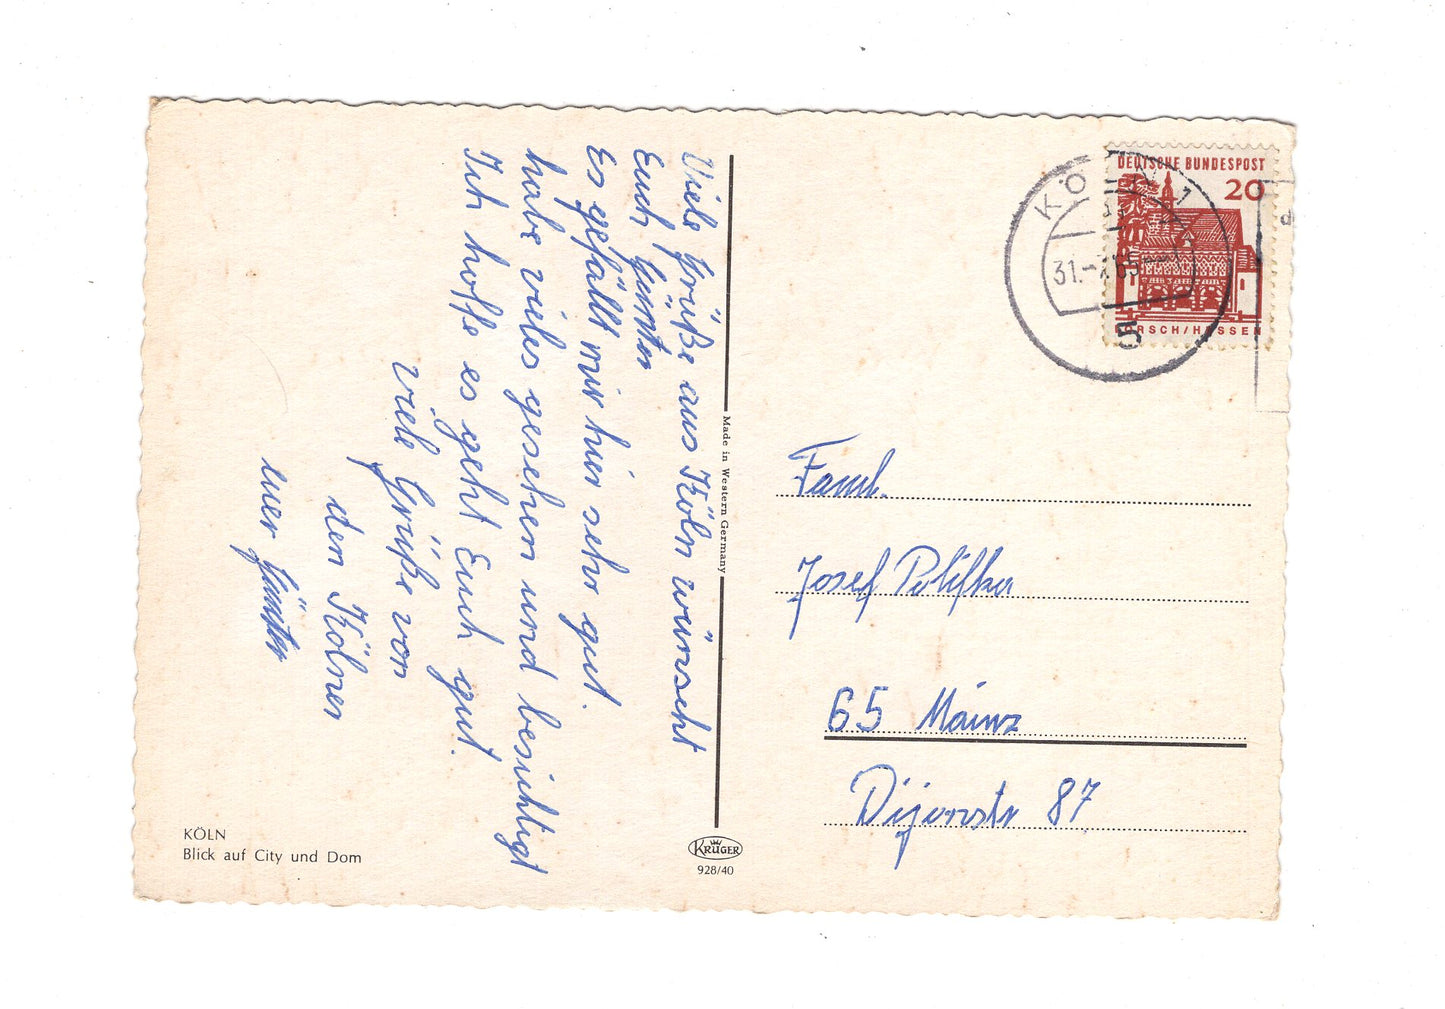 Viele Grüße aus Köln wünscht
Euch Günter
Es gefällt mir hier sehr gut.
habe vieles gesehen und besichtigt
Ich hoffe es geht Euch gut.
viele Grüße von
den Kölner
euer Günter
KÖLN
Blick auf City und Dom
Made in Western Germany
KRÜGER
928/40
DEUTSCHE BUNDESPOST
20
LORSCH/HESSEN
KÖLN 1
31.
5
d
Faml.
Josef Polifka
65 Mainz
Dijonstr 87